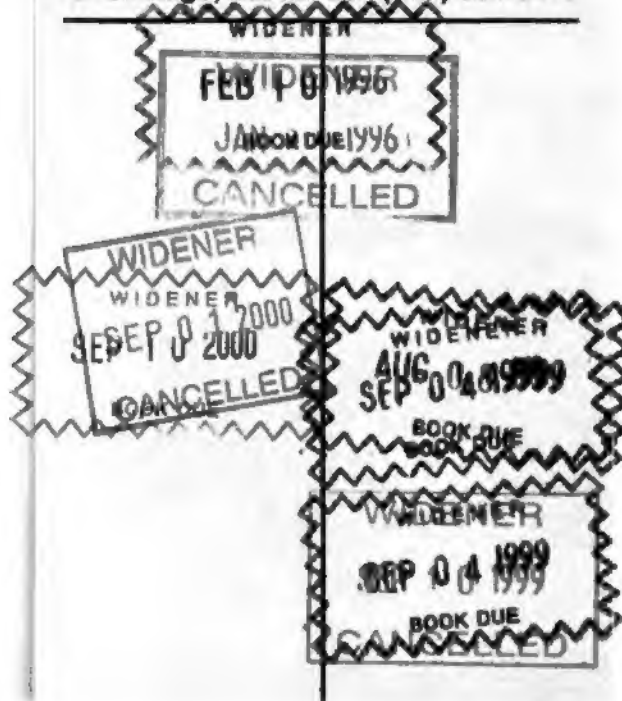 WIDENER
WIDENER
FEB 10 1996
JAN 1996
BOOK DUE
CANCELLED
WIDENER
WIDENER
SEP 01 2000
SEP 10 2000
CANCELLED
BOOK DUE
WIDENER
AUG
SEP 04 1999
BOOK DUE
BOOK DUE
WIDENER
WIDENER
SEP 04 1999
SEP 1999
BOOK DUE
CANCELLED